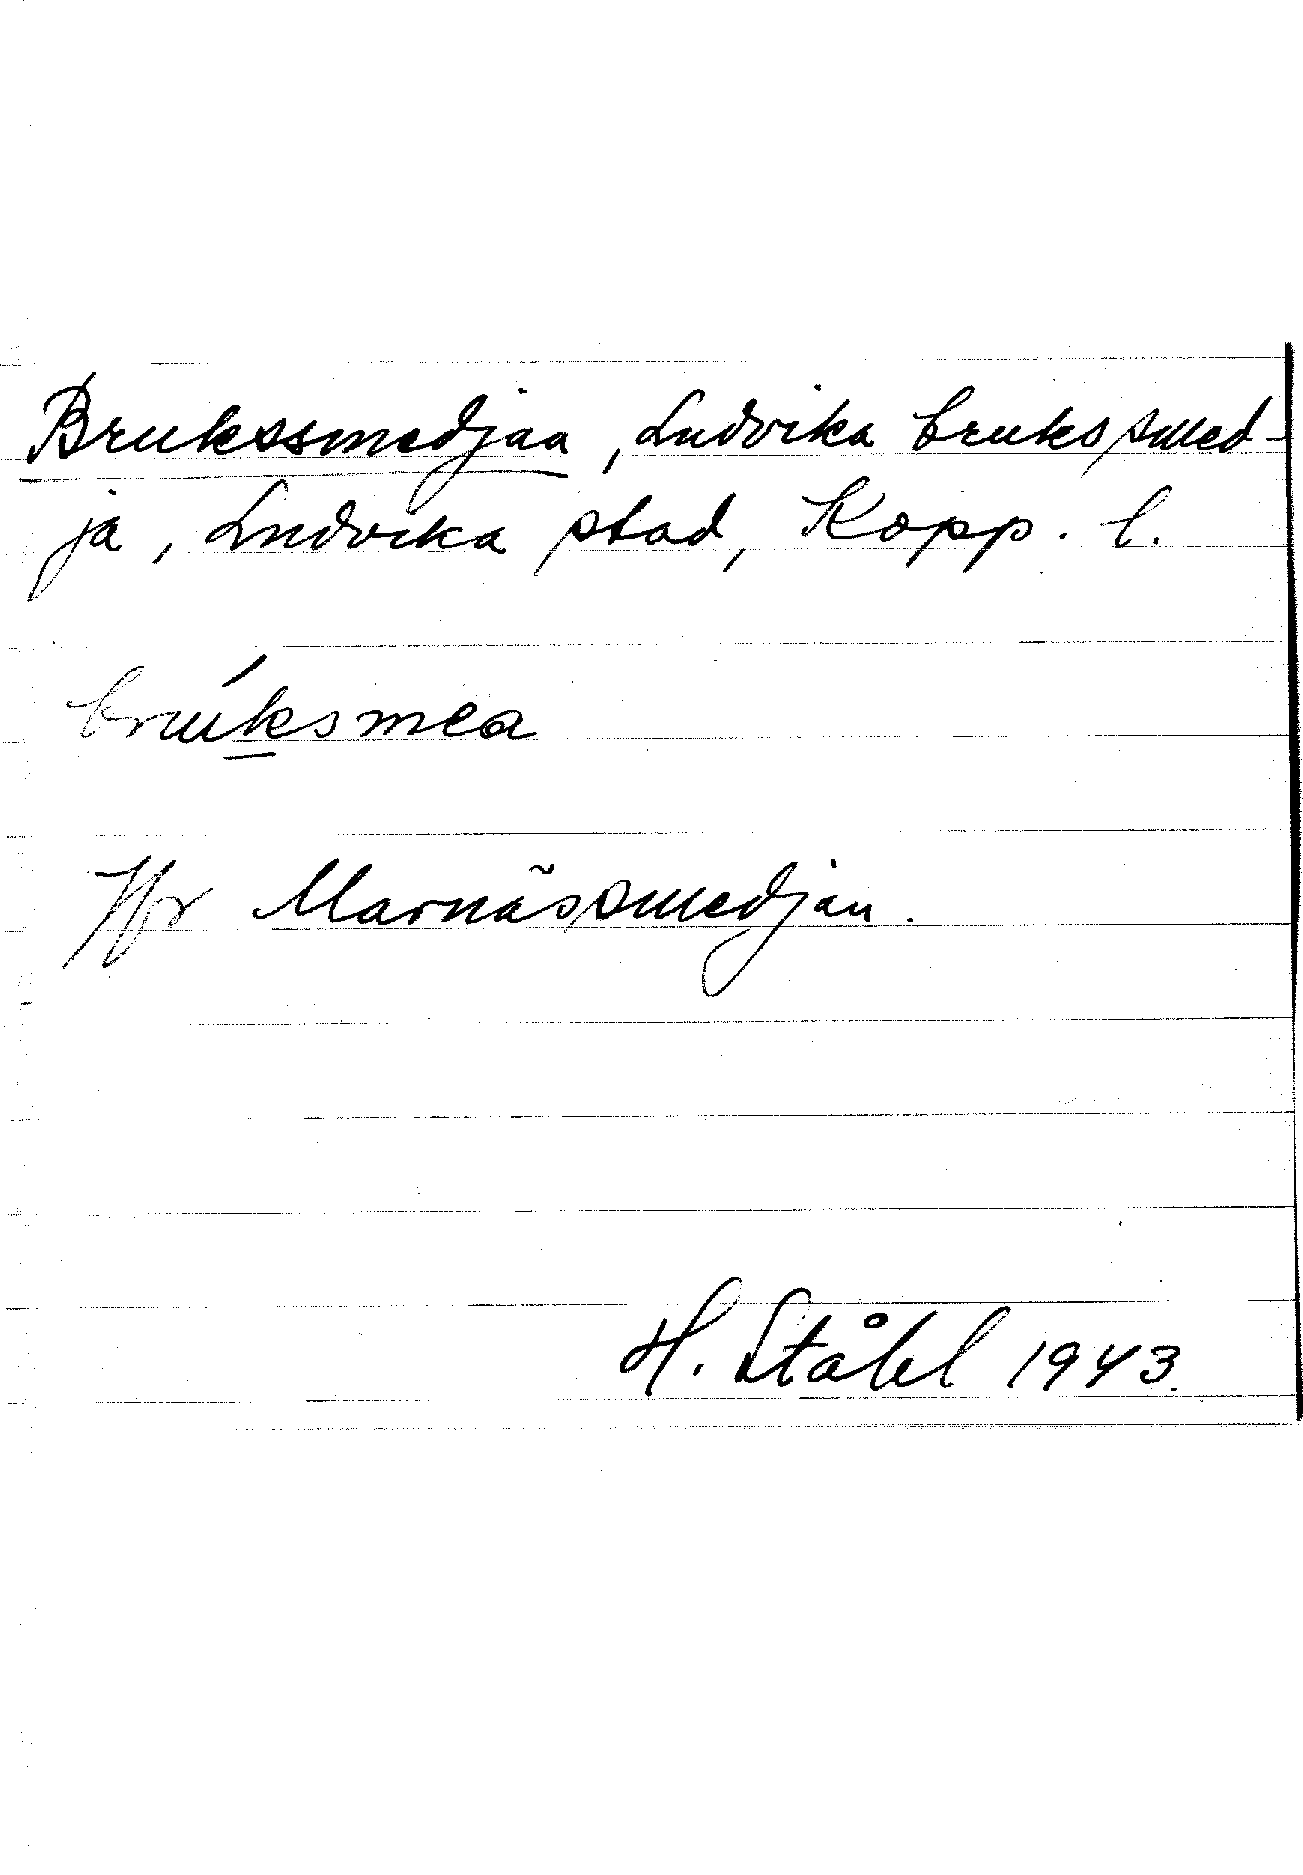 Brukssmedjaa, Ludvika bruks smed-
ja, Ludvika stad, Kopp. l.
brúksmea
Jfr Marnässmedjan.
H. Ståhl 1943.